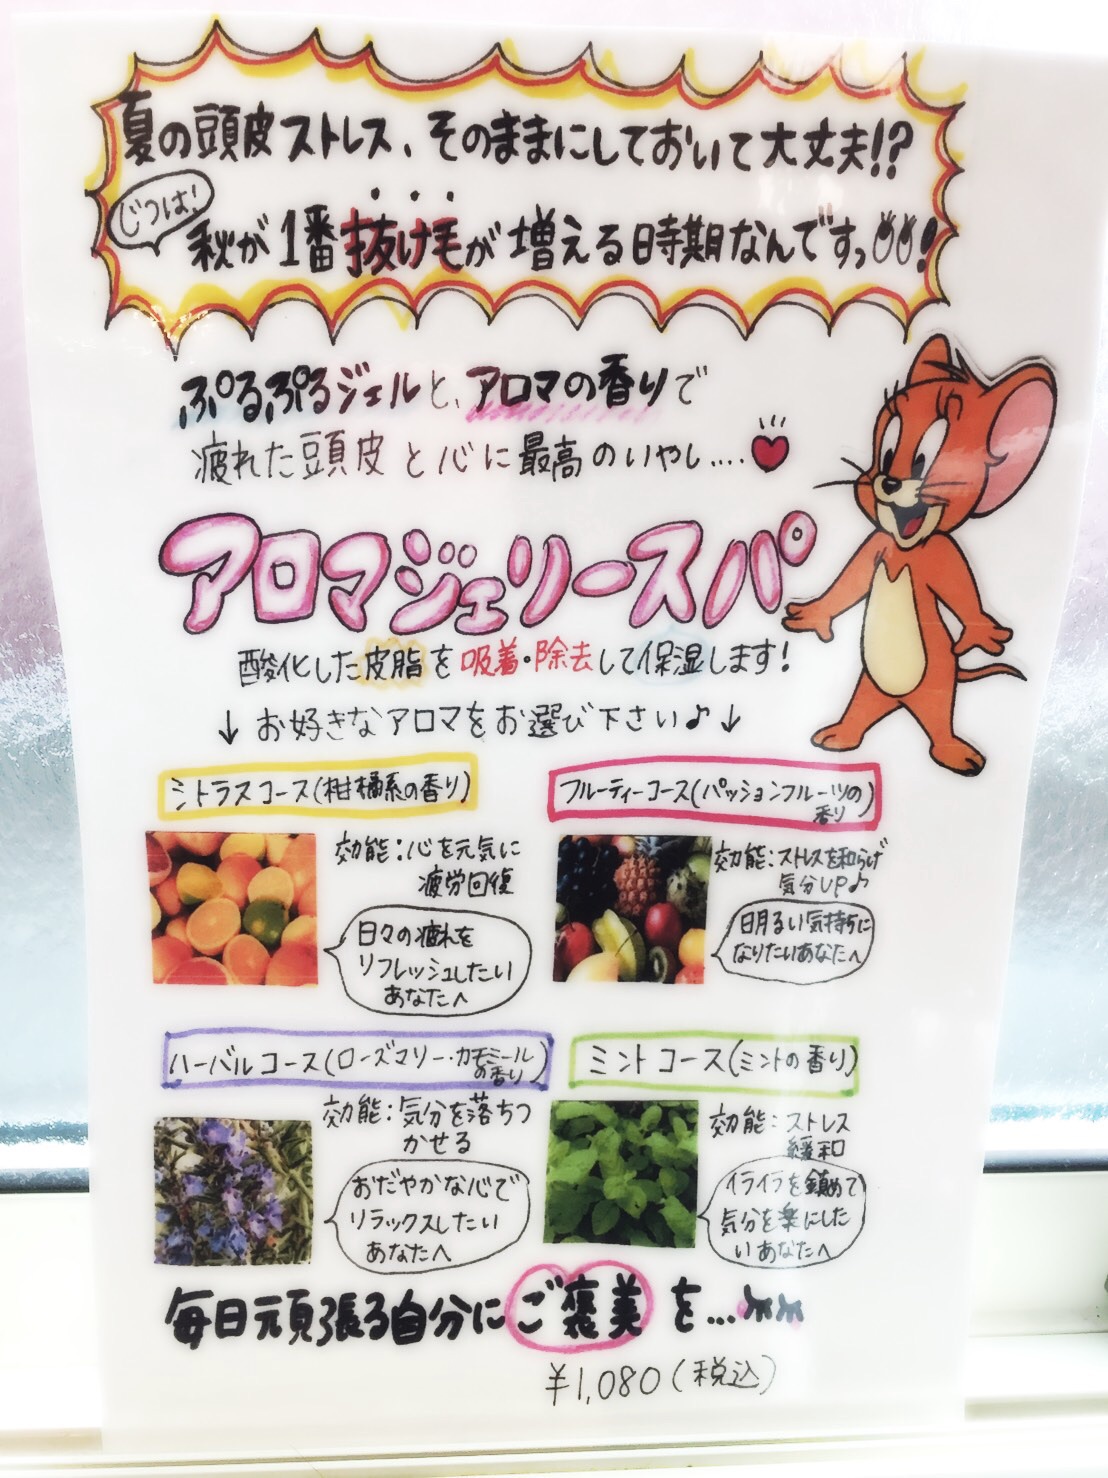 夏の頭皮ストレス、そのままにしておいて大丈夫!?
じつは!
秋が1番抜け毛が増える時期なんですっ!
ぷるぷるジェルと、アロマの香りで
疲れた頭皮と心に最高のいやし....
アロマジェリースパ
酸化した皮脂を吸着・除去して保湿します!
↓お好きなアロマをお選び下さい♪↓
シトラスコース(柑橘系の香り)
効能:心を元気に
疲労回復
日々の疲れを
リフレッシュしたい
あなたへ
フルーティーコース(パッションフルーツの
香り)
効能:ストレスを和らげ
気分UP♪
明るい気持ちに
なりたいあなたへ
ハーバルコース(ローズマリー・カモミール
の香り)
効能:気分を落ちつ
かせる
おだやかな心で
リラックスしたい
あなたへ
ミントコース(ミントの香り)
効能:ストレス
緩和
イライラを鎮めて
気分を楽にした
いあなたへ
毎日頑張る自分にご褒美を...
¥1,080(税込)